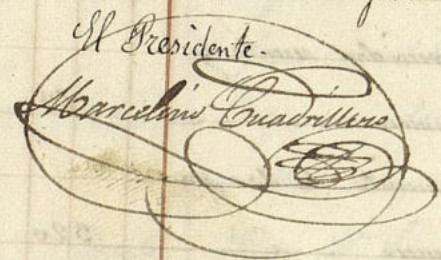 El Presidente.
Marcelino Cuadrillero